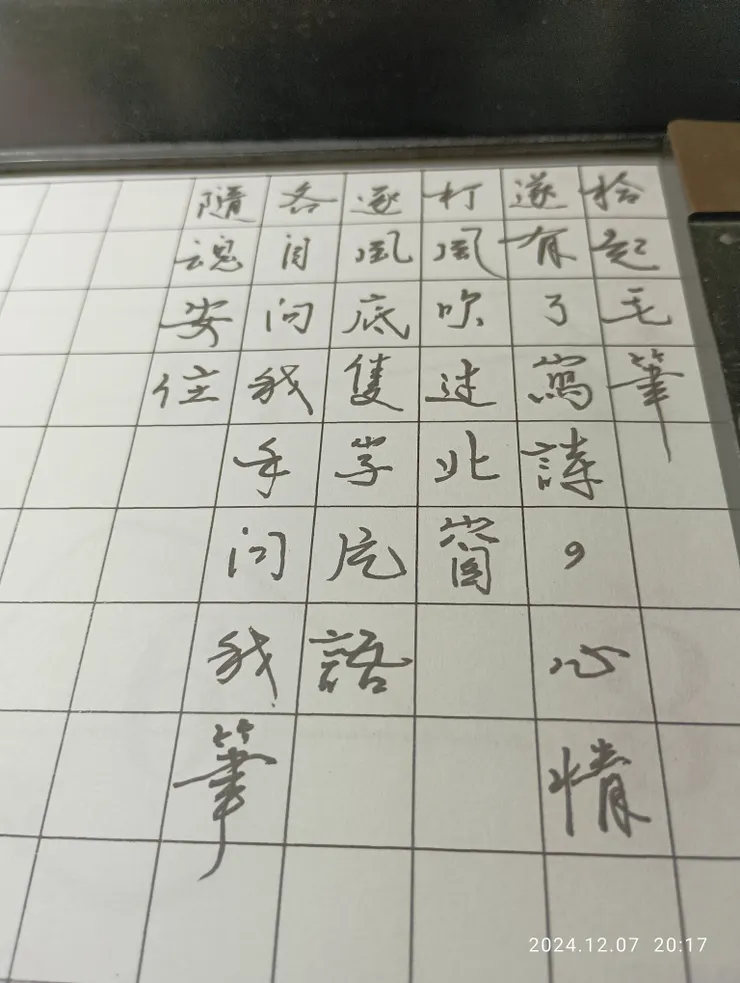 拾起毛筆
遂有了寫詩，心情
打風吹過北窗
逐風底隻字片語
各自問我手問我筆
隨魂安住
2024.12.07 20:17